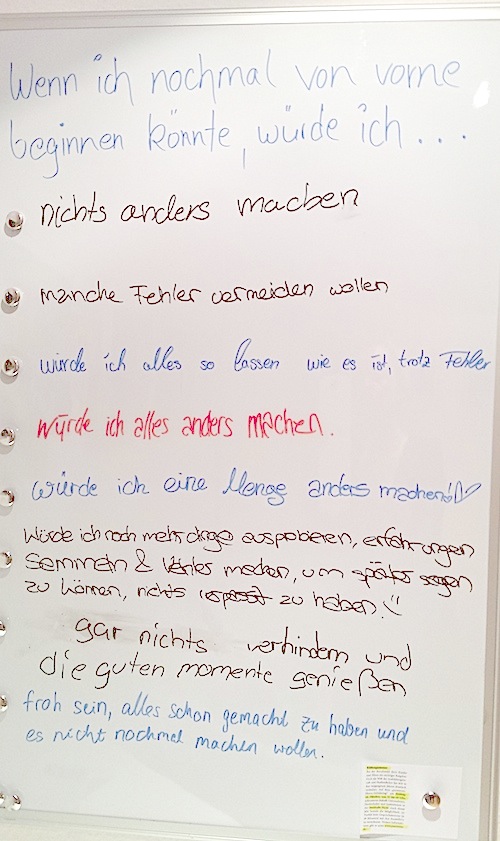 Wenn ich nochmal von vorne
beginnen könnte, würde ich...
nichts anders machen
manche Fehler vermeiden wollen
würde ich alles so lassen wie es ist, trotz Fehler
würde ich alles anders machen.
würde ich eine Menge anders machen!
Würde ich noch mehr dinge ausprobieren, erfahrungen
Sammeln & machen, um später sagen
zu können, nichts verpasst zu haben!
gar nichts verhindern und
die guten momente genießen
froh sein, alles schon gemacht zu haben und
es nicht nochmal machen wollen.